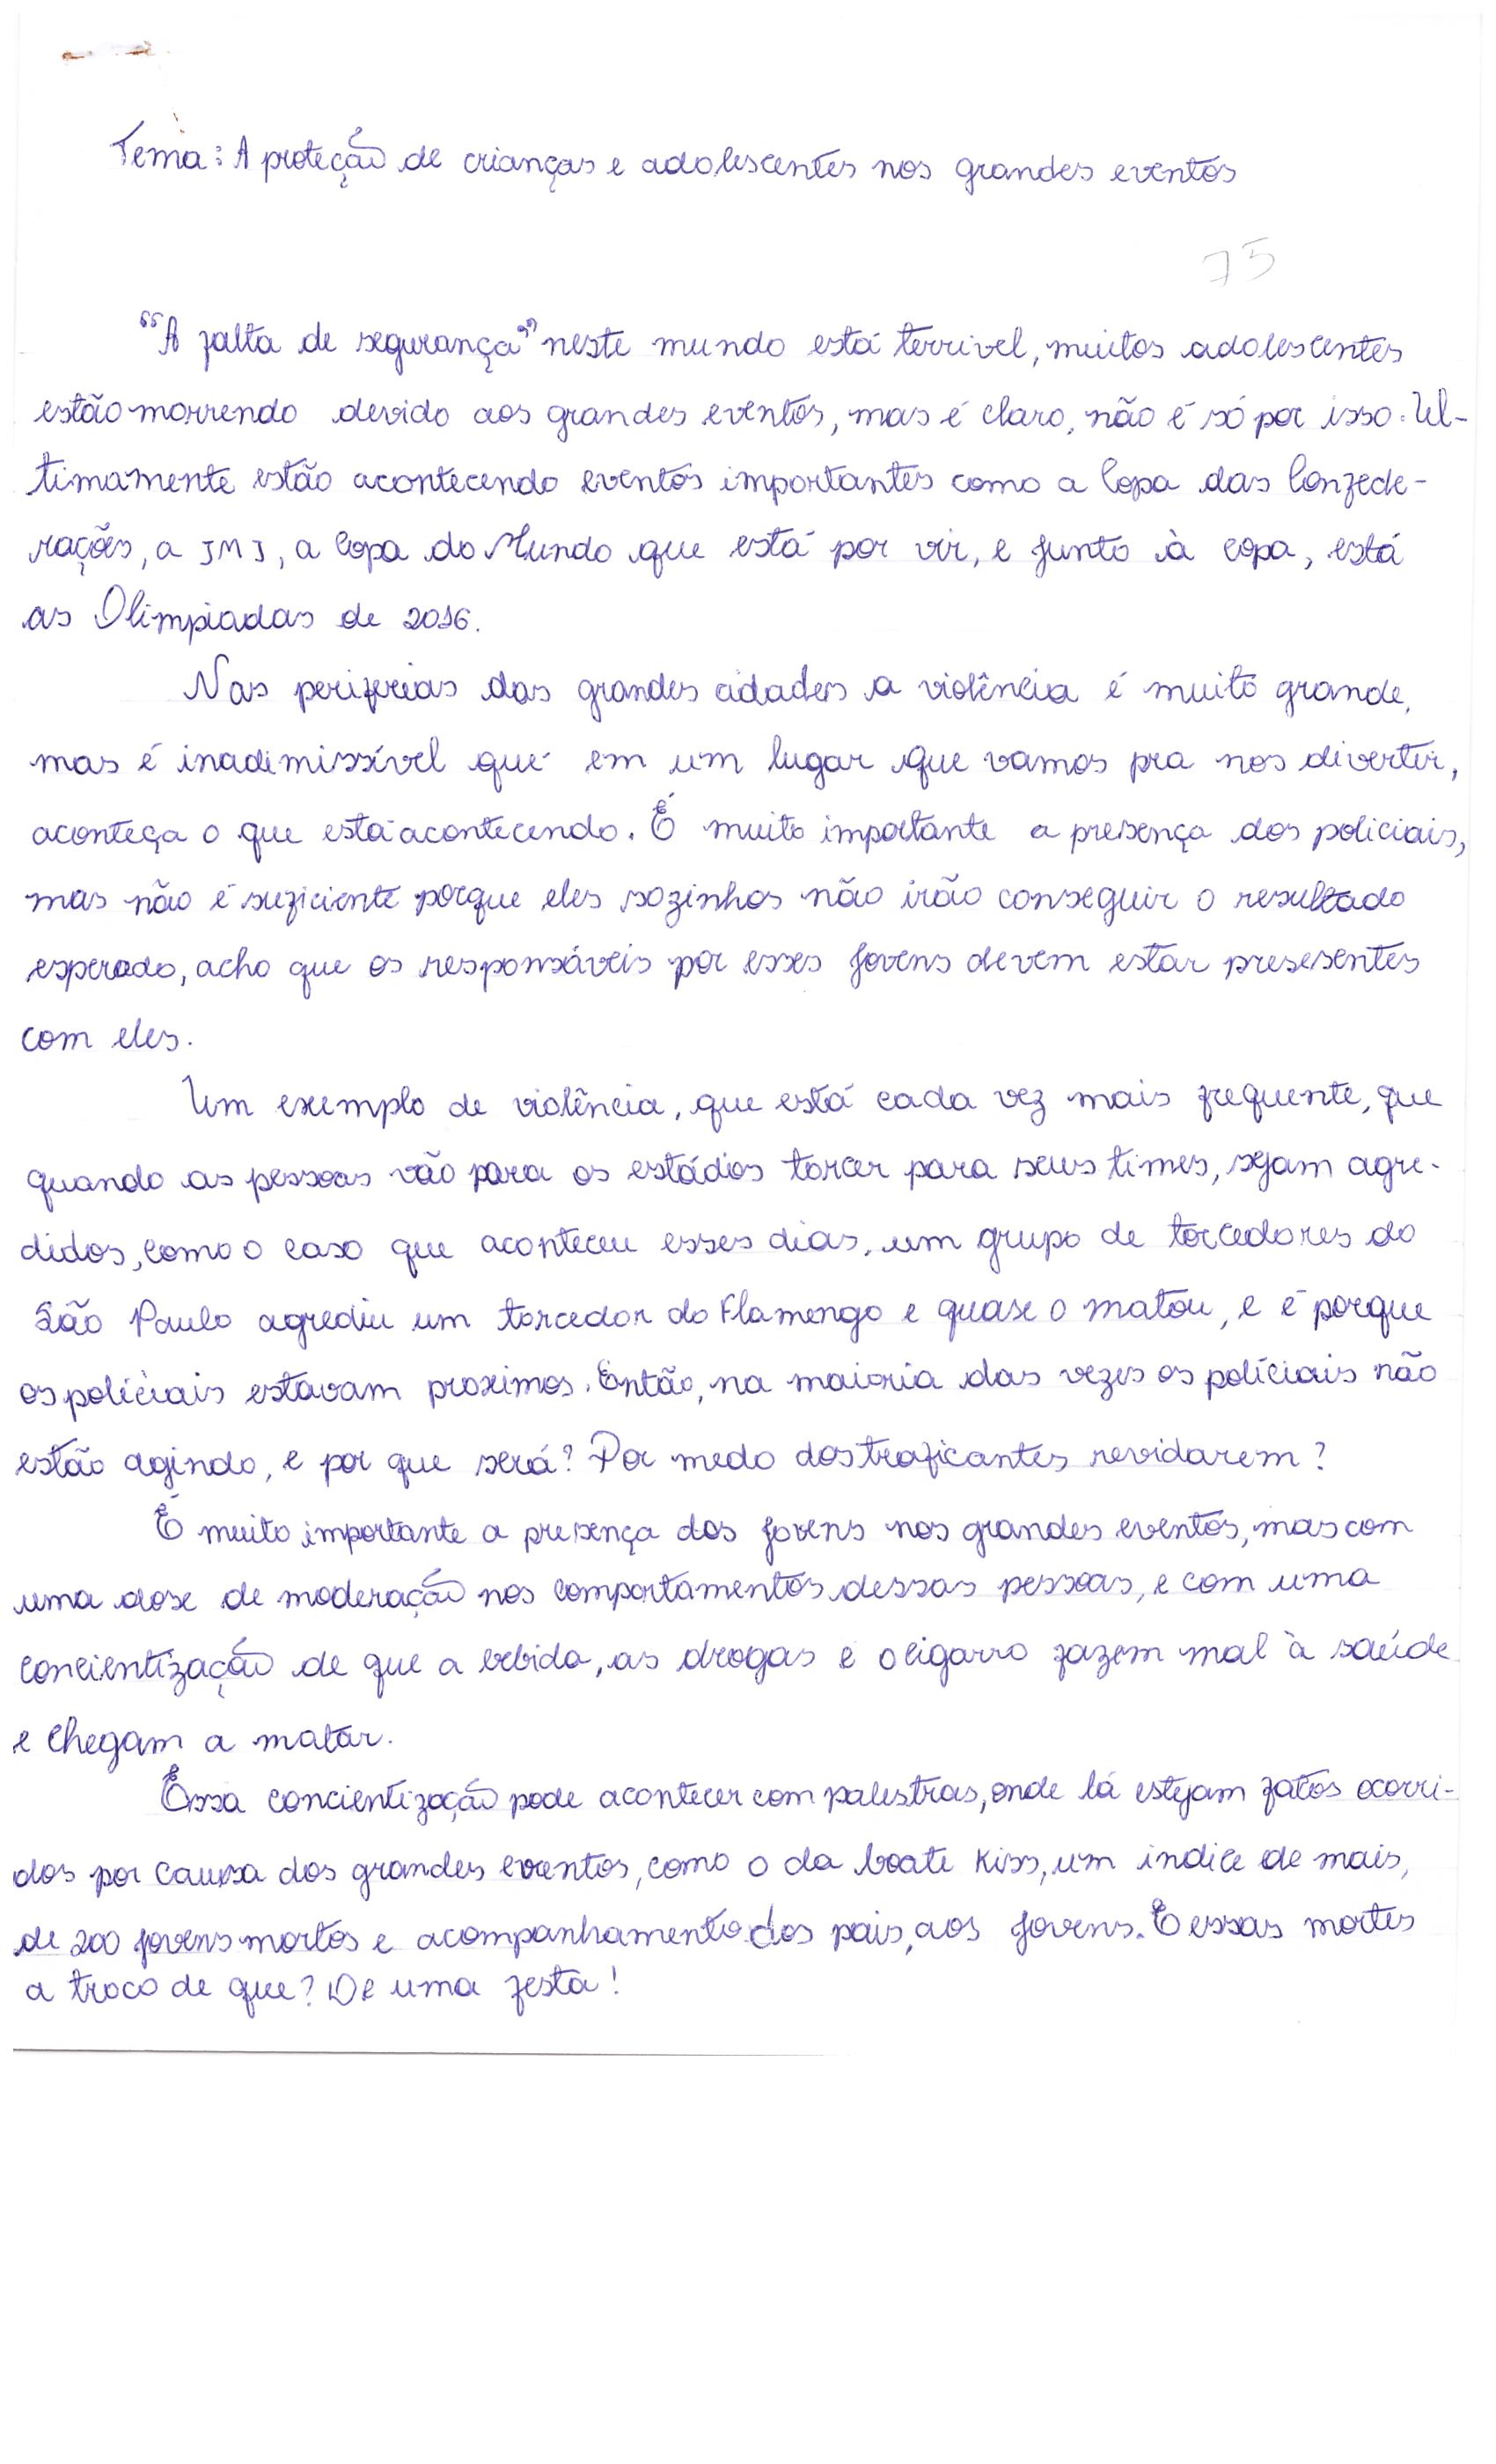 Tema: A proteção de crianças e adolescentes nos grandes eventos
75
"A falta de segurança" neste mundo está terrivel, muitos adolescentes
estão morrendo devido aos grandes eventos, mas é claro, não é só por isso. Ul-
timamente estão acontecendo eventos importantes como a Copa das Confede-
rações, a JMJ, a Copa do Mundo que está por vir, e junto à copa, está
as Olimpiadas de 2016.
Nas periferias das grandes cidades a violência é muito grande,
mas é inadimissível que em um lugar que vamos pra nos divertir,
aconteça o que está acontecendo. É muito importante a presença dos policiais,
mas não é suficiente porque eles sozinhos não irão conseguir o resultado
esperado, acho que os responsáveis por esses jovens devem estar presesentes
com eles.
Um exemplo de violência, que está cada vez mais frequente, que
quando as pessoas vão para os estádios torcer para seus times, sejam agre-
didos, como o caso que aconteceu esses dias, um grupo de torcedores do
São Paulo agrediu um torcedor do Flamengo e quase o matou, e é porque
os políciais estavam proximos. Então, na maioria das vezes os políciais não
estão agindo, e por que será? Por medo dos traficantes revidarem?
É muito importante a presença dos jovens nos grandes eventos, mas com
uma dose de moderação nos comportamentos dessas pessoas, e com uma
concientização de que a bebida, as drogas e o cigarro fazem mal à saúde
e chegam a matar.
Essa concientização pode acontecer com palestras, onde lá estejam fatos ocorri-
dos por causa dos grandes eventos, como o da boate Kiss, um indice de mais,
de 200 jovens mortos e acompanhamento dos pais, aos jovens. E essas mortes
a troco de que? De uma festa!